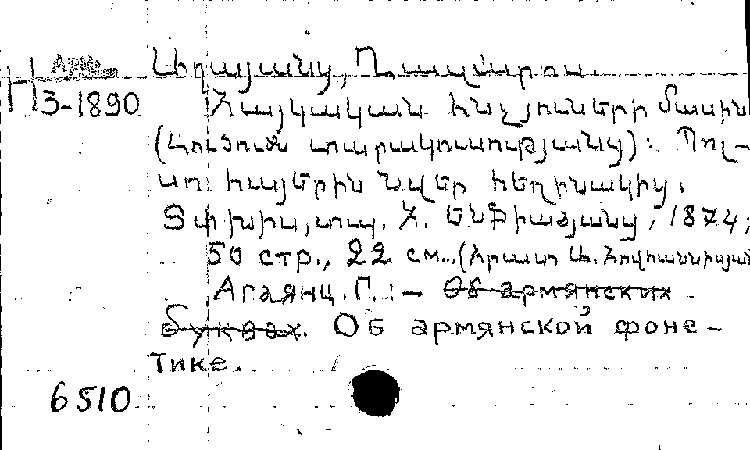 Աղայանց, Ղազարոս.
Н 3-1890 Հայկական հնչյունների մասին
(Լուծումն տարակուսությանց): Պոլ-
սո հայերին նվեր հեղինակից.
Թփխիս, տպ. Հ. Էնֆիաճյանց, 1874,
50 стр., 22 см. (Հրատ. Ա. Հովհաննիսյան
Агаянц Г. – Об армянских
буквах. Об армянской фоне-
тике.
6510